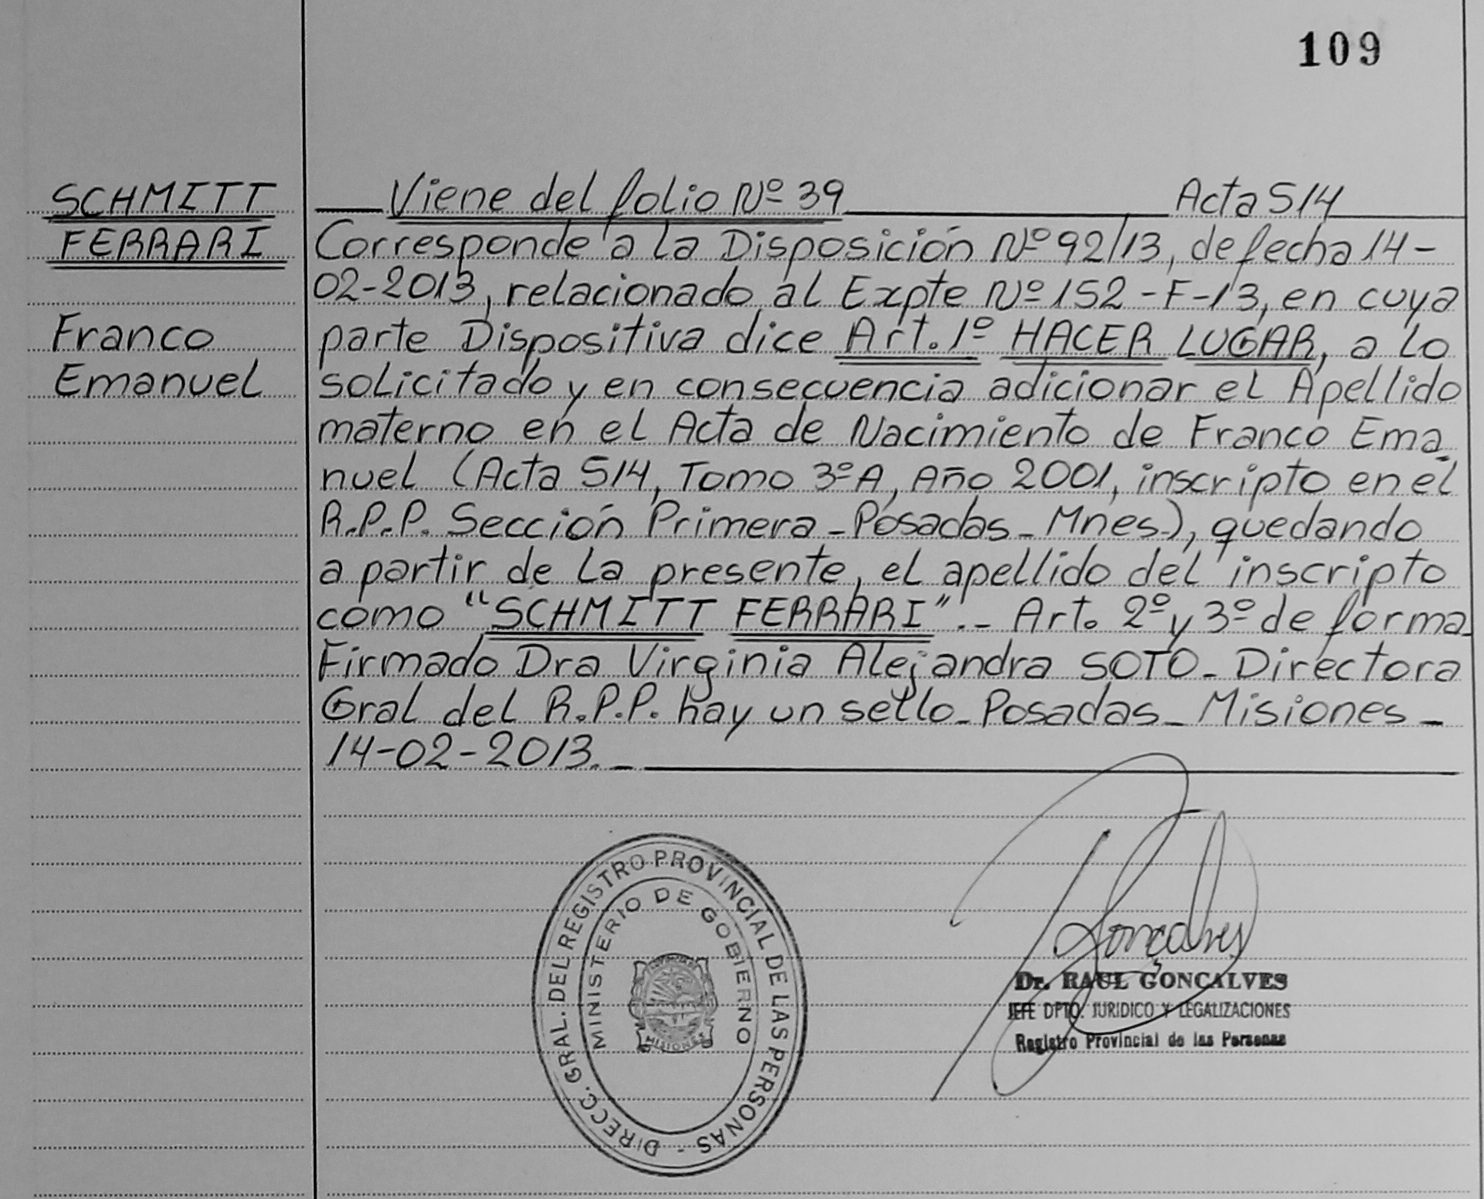 109
SCHMITT
FERRARI
Franco
Emanuel
Viene del folio Nº 39 Acta 514
Corresponde a la Disposición Nº 92/13, de fecha 14-
02-2013, relacionado al Expte Nº 152-F-13, en cuya
parte Dispositiva dice Art. 1º HACER LUGAR, a lo
solicitado y en consecuencia adicionar el Apellido
materno en el Acta de Nacimiento de Franco Ema
nuel (Acta 514, Tomo 3ºA, Año 2001, inscripto en el
R.P.P. Sección Primera - Posadas - Mnes.), quedando
a partir de la presente, el apellido del inscripto
como "SCHMITT FERRARI".- Art. 2º y 3º de forma
Firmado Dra Virginia Alejandra SOTO - Directora
Gral del R.P.P. hay un sello - Posadas - Misiones -
14-02-2013.-
DIRECC. GRAL. DEL REGISTRO PROVINCIAL DE LAS PERSONAS -
MINISTERIO DE GOBIERNO
MISIONES
Gonçalves
Dr. RAUL GONCALVES
JEFE DPTO. JURIDICO Y LEGALIZACIONES
Registro Provincial de las Personas